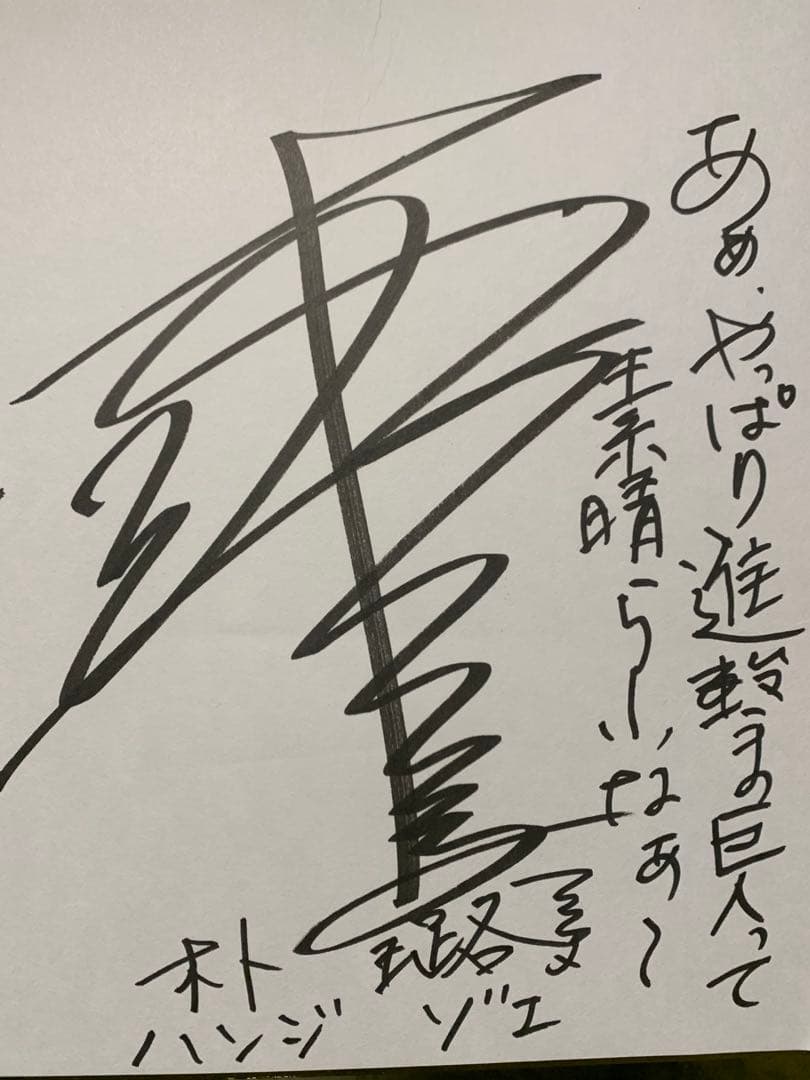 あぁ、やっぱり進撃の巨人って
素晴らしいなぁ〜
朴 璐美
ハンジ ゾエ